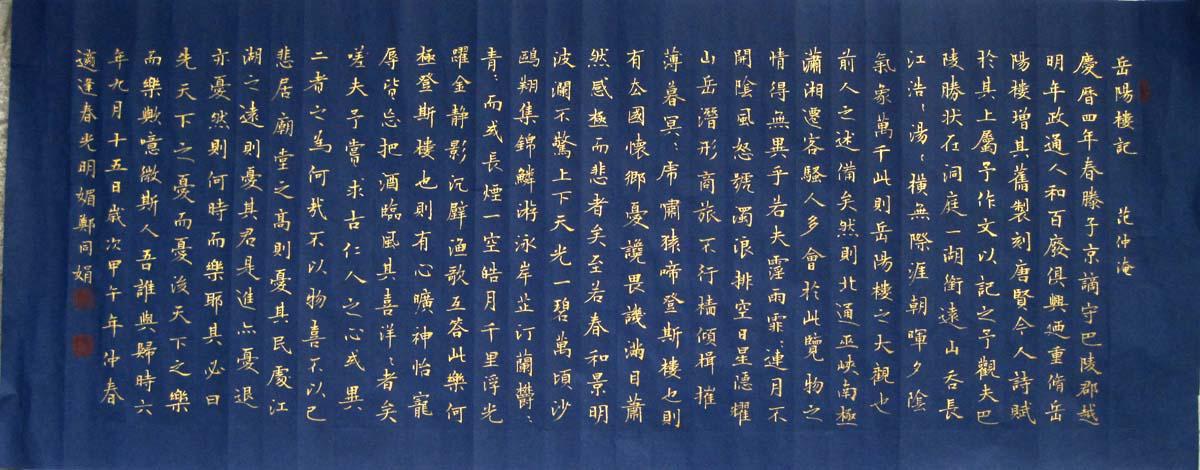 岳陽樓記 范仲淹
慶曆四年春滕子京謫守巴陵郡越
明年政通人和百廢俱興廼重脩岳
陽樓增其舊製刻唐賢今人詩賦
於其上屬予作文以記之予觀夫巴
陵勝狀在洞庭一湖銜遠山吞長
江浩〻湯〻橫無際涯朝暉夕陰
氣象萬千此則岳陽樓之大觀也
前人之述備矣然則北通巫峽南極
瀟湘遷客騷人多會於此覽物之
情得無異乎若夫霪雨霏〻連月不
開陰風怒號濁浪排空日星隱耀
山岳潛形商旅不行檣傾楫摧
薄暮冥〻虎嘯猿啼登斯樓也則
有去國懷鄉憂讒畏譏滿目蕭
然感極而悲者矣至若春和景明
波瀾不驚上下天光一碧萬頃沙
鷗翔集錦鱗游泳岸芷汀蘭鬱〻
青〻而或長煙一空皓月千里浮光
躍金静影沉璧漁歌互答此樂何
極登斯樓也則有心曠神怡寵
辱皆忘把酒臨風其喜洋〻者矣
嗟夫予嘗求古仁人之心或異
二者之為何哉不以物喜不以己
悲居廟堂之高則憂其民處江
湖之遠則憂其君是進亦憂退
亦憂然則何時而樂耶其必曰
先天下之憂而憂後天下之樂
而樂歟噫微斯人吾誰與歸時六
年九月十五日歲次甲午年仲春
適逢春光明媚鄭同娟